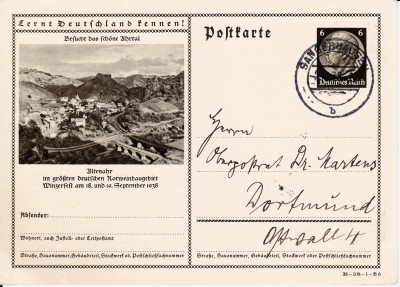 Lernt Deutschland kennen!
Besucht das schöne Ahrtal
Altenahr
im größten deutschen Rotweinbaugebiet
Winzerfest am 18. und 19. September 1938
Absender:
Wohnort, auch Zustell- oder Leitpostamt
Straße, Hausnummer, Gebäudeteil, Stockwerk od. Postschließfachnummer
Postkarte
6 6
Deutsches Reich
b
Herrn
Oberpostrat Dr. Martens
Dortmund
Ostwall 4
Straße, Hausnummer, Gebäudeteil, Stockwerk oder Postschließfachnummer
38-108-1-B6